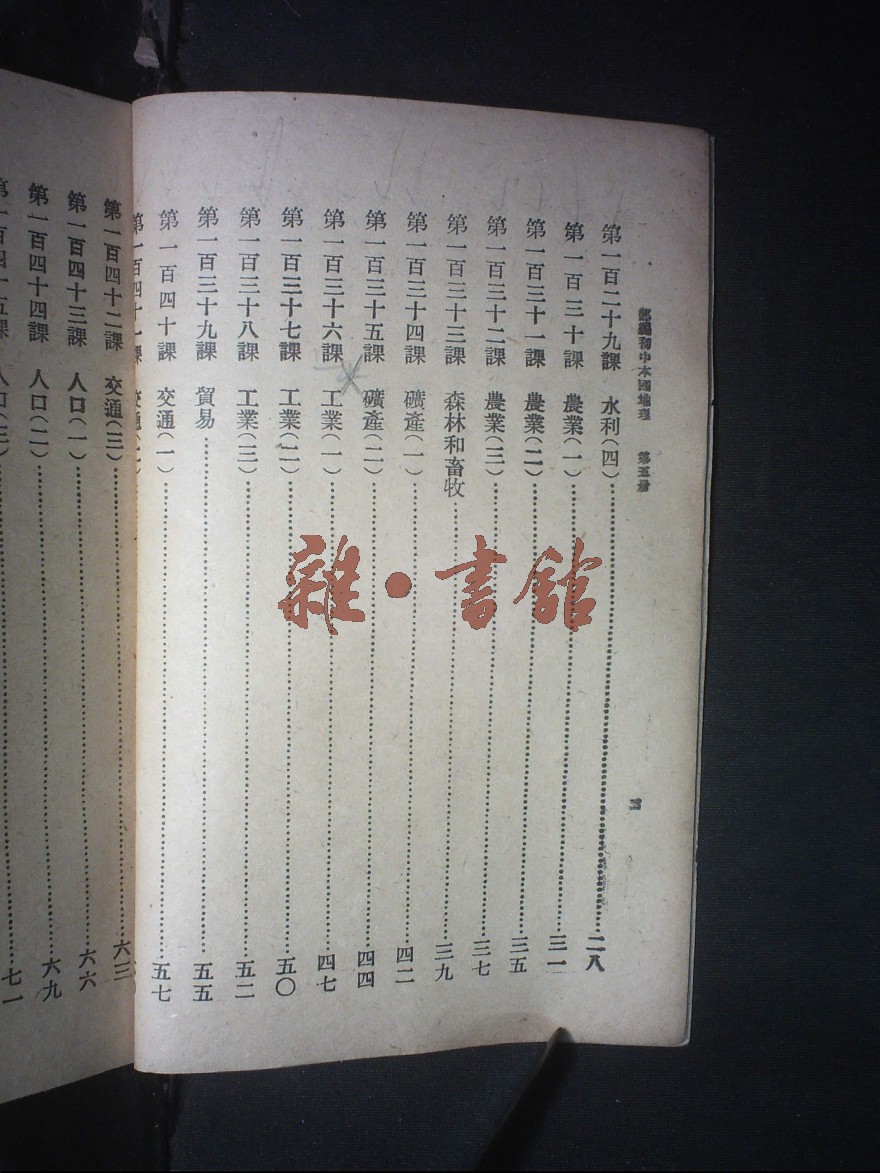 部編初中本國地理　第五册
第一百二十九課　水利(四)……二八
第一百三十課　農業(一)……三一
第一百三十一課　農業(二)……三五
第一百三十二課　農業(三)……三七
第一百三十三課　森林和畜牧……三九
第一百三十四課　礦產(一)……四二
第一百三十五課　礦產(二)……四四
第一百三十六課　工業(一)……四七
第一百三十七課　工業(二)……五〇
第一百三十八課　工業(三)……五二
第一百三十九課　貿易……五五
第一百四十課　交通(一)……五七
第一百四十一課　交通(二)
第一百四十二課　交通(三)……六三
第一百四十三課　人口(一)……六六
第一百四十四課　人口(二)……六九
第一百四十五課　人口(三)……七一
雜·書館